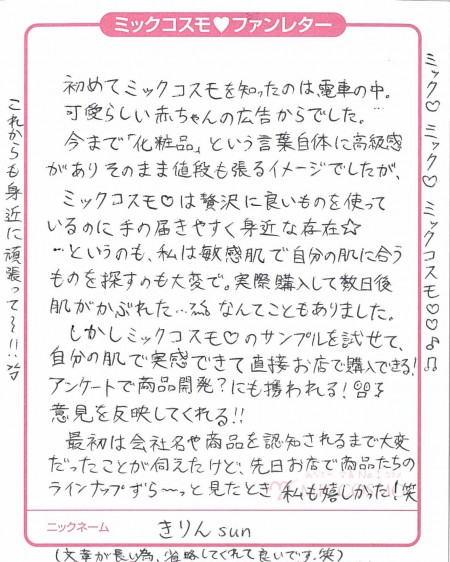 ミックコスモ♥ファンレター
初めてミックコスモを知ったのは電車の中。
可愛らしい赤ちゃんの広告からでした。
今まで「化粧品」という言葉自体に高級感
がありそのまま値段も張るイメージでしたが、
ミックコスモ♡は贅沢に良いものを使って
いるのに手の届きやすく身近な存在☆
…というのも、私は敏感肌で自分の肌に合う
ものを探すのも大変で。実際購入して数日後
肌がかぶれた…なんてこともありました。
しかしミックコスモ♡のサンプルを試せて、
自分の肌で実感できて直接お店で購入できる!
アンケートで商品開発?にも携われる!
意見を反映してくれる!!
最初は会社名や商品を認知されるまで大変
だったことが伺えたけど、先日お店で商品たちの
ラインナップずら~っと見たとき私も嬉しかった!笑
ニックネーム きりんsun
(文章が長い為、省略してくれて良いです。笑)
ミック♡ミック♡ミックコスモ♡♡♪♫
これからも身近に頑張って~!!